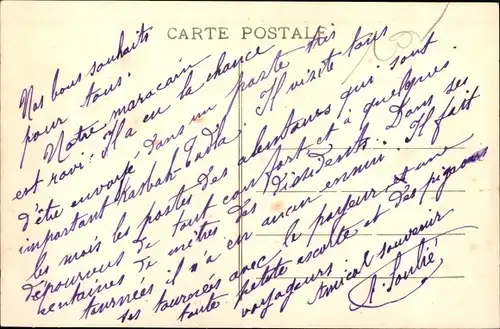 CARTE POSTALE
Nos bons souhaits
pour tous.
Notre marocain
est ravi. Il a eu la chance
d'être envoyé dans un poste très
important Kasbah-Tadla. Il visite tous
les mois les postes des alentours qui sont
dépourvus de tout confort et à quelques
centaines de mètres des Dissidents. Dans ses
tournées il n'a eu aucun ennui. Il fait
ses tournées avec le porteur, une
toute petite escorte et des pigeons
voyageurs. Amical souvenir